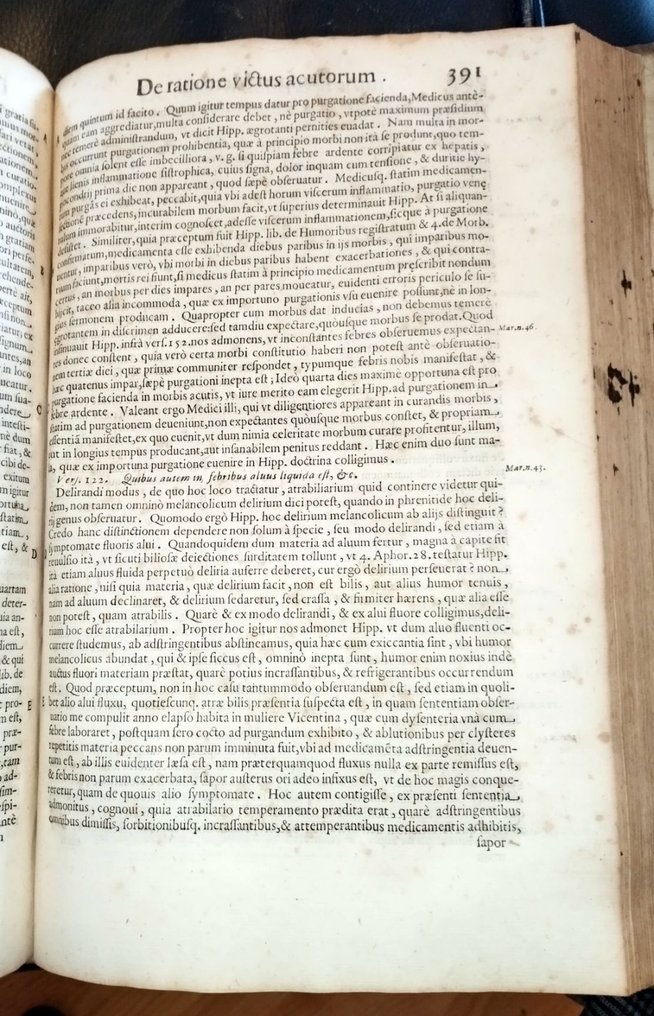 De ratione victus acutorum .
391
diem quintum id facito . Quum igitur tempus datur pro purgatione facienda, Medicus antè-
quàm eam aggrediatur, multa considerare debet , nè purgatio , vtpotè maximum præsidium
nec temerè administrandum, vt dicit Hipp. ægrotanti pernities euadat . Nam multa in mor-
bis occurrunt purgationem prohibentia, quæ à principio morbi non ità se produnt, quo tem-
pore omnia solent esse imbecilliora , v. g. si quispiam febre ardente corripiatur ex hepatis ,
aut lienis inflammatione sistrophica, cuius signa, dolor inquam cum tensione , & duritie hy-
pocondrij prima die non appareant , quod sæpè obseruatur . Medicusq. statim medicamen-
tum purgãs ei exhibeat, peccabit, quia vbi adest horum viscerum inflammatio, purgatio venę
sectionē præcedens, incurabilem morbum facit, vt superius determinauit Hipp. At si aliquan-
tulum immorabitur, interim cognoscet, adesse viscerum inflammationem, sicque à purgatione
desistet . Similiter, quia præceptum fuit Hipp. lib. de Humoribus registratum & 4. de Morb.
confirmatum, medicamenta esse exhibenda diebus paribus in ijs morbis , qui imparibus mo-
uentur , imparibus verò, vbi morbi in diebus paribus habent exacerbationes , & qui contra-
rium faciunt, mortis rei fiunt, si medicus statim à principio medicamentum pręscribit nondum
certus , an morbus per dies impares , an per pares moueatur, euidenti erroris periculo se su-
bijcit, taceo alia incommoda , quæ ex importuno purgationis vsu euenire possunt, nè in lon-
gius sermonem producam . Quapropter cum morbus dat inducias , non debemus temerè
ægrotantem in discrimen adducere: sed tamdiu expectare, quòusque morbus se prodat. Quod
insinuauit Hipp. infrà vers. 152. nos admonens, vt inconstantes febres obseruemus expectan-
Mar.n.46.
tes donec constent , quia verò certa morbi constitutio haberi non potest antè obseruatio-
nem tertiæ diei , quæ primæ communiter respondet , typumque febris nobis manifestat , &
hæc quatenus impar, sæpè purgationi inepta est ; Ideò quarta dies maximè opportuna est pro
purgatione facienda in morbis acutis, vt iure merito eam elegerit Hipp. ad purgationem in
febre ardente . Valeant ergo Medici illi, qui vt diligentiores appareant in curandis morbis ,
statim ad purgationem deueniunt, non expectantes quòusque morbus constet, & propriam
essentiā manifestet, ex quo euenit, vt dum nimia celeritate morbum curare profitentur, illum,
aut in longius tempus producant, aut insanabilem penitus reddant . Hæc enim duo sunt ma-
la, quæ ex importuna purgatione euenire in Hipp. doctrina colligimus .
Vers. 122. Quibus autem in febribus aluus liquida est, &c.
Mar.n.43.
Delirandi modus , de quo hoc loco tractatur , atrabiliarium quid continere videtur qui-
dem, non tamen omninò melancolicum delirium dici potest, quando in phrenitide hoc deli-
rij genus obseruatur . Quomodo ergò Hipp. hoc delirium melancolicum ab alijs distinguit ?
Credo hanc distinctionem dependere non solum à specie , seu modo delirandi , sed etiam à
symptomate fluoris alui . Quandoquidem dum materia ad aluum fertur , magna à capite fit
reuulsio ità , vt sicuti biliosæ deiectiones surditatem tollunt , vt 4. Aphor. 28. testatur Hipp.
ità etiam aluus fluida perpetuò deliria auferre deberet, cur ergò delirium perseuerat ? non
alia ratione , nisi quia materia , quæ delirium facit , non est bilis , aut alius humor tenuis ,
nam ad aluum declinaret, & delirium sedaretur, sed crassa , & firmiter hærens , quæ alia esse
non potest , quam atrabilis . Quarè & ex modo delirandi , & ex alui fluore colligimus, deli-
rium hoc esse atrabilarium . Propter hoc igitur nos admonet Hipp. vt dum aluo fluenti oc-
currere studemus, ab adstringentibus abstineamus, quia hæc cum exiccantia sint , vbi humor
melancolicus abundat , qui & ipse siccus est , omninò inepta sunt , humor enim noxius indè
auctus fluori materiam præstat, quarè potius incrassantibus, & refrigerantibus occurrendum
est . Quod præceptum, non in hoc casu tantummodo obseruandum est , sed etiam in quoli-
bet alio alui fluxu, quotiescunq. atræ bilis præsentia suspecta est , in quam sententiam obser-
uatio me compulit anno elapso habita in muliere Vicentina , quæ cum dysenteria vnà cum
febre laboraret , postquam sero cocto ad purgandum exhibito , & ablutionibus per clysteres
repetitis materia peccans non parum imminuta fuit, vbi ad medicamēta adstringentia deuen-
tum est , ab illis euidenter læsa est , nam præterquamquod fluxus nulla ex parte remissus est,
& febris non parum exacerbata, sapor austerus ori adeo infixus est, vt de hoc magis conque-
reretur, quam de quouis alio symptomate . Hoc autem contigisse , ex præsenti sententia
admonitus , cognoui , quia atrabilario temperamento prædita erat , quarè adstringentibus
omnibus dimissis, sorbitionibusq. incrassantibus, & attemperantibus medicamentis adhibitis,
sapor